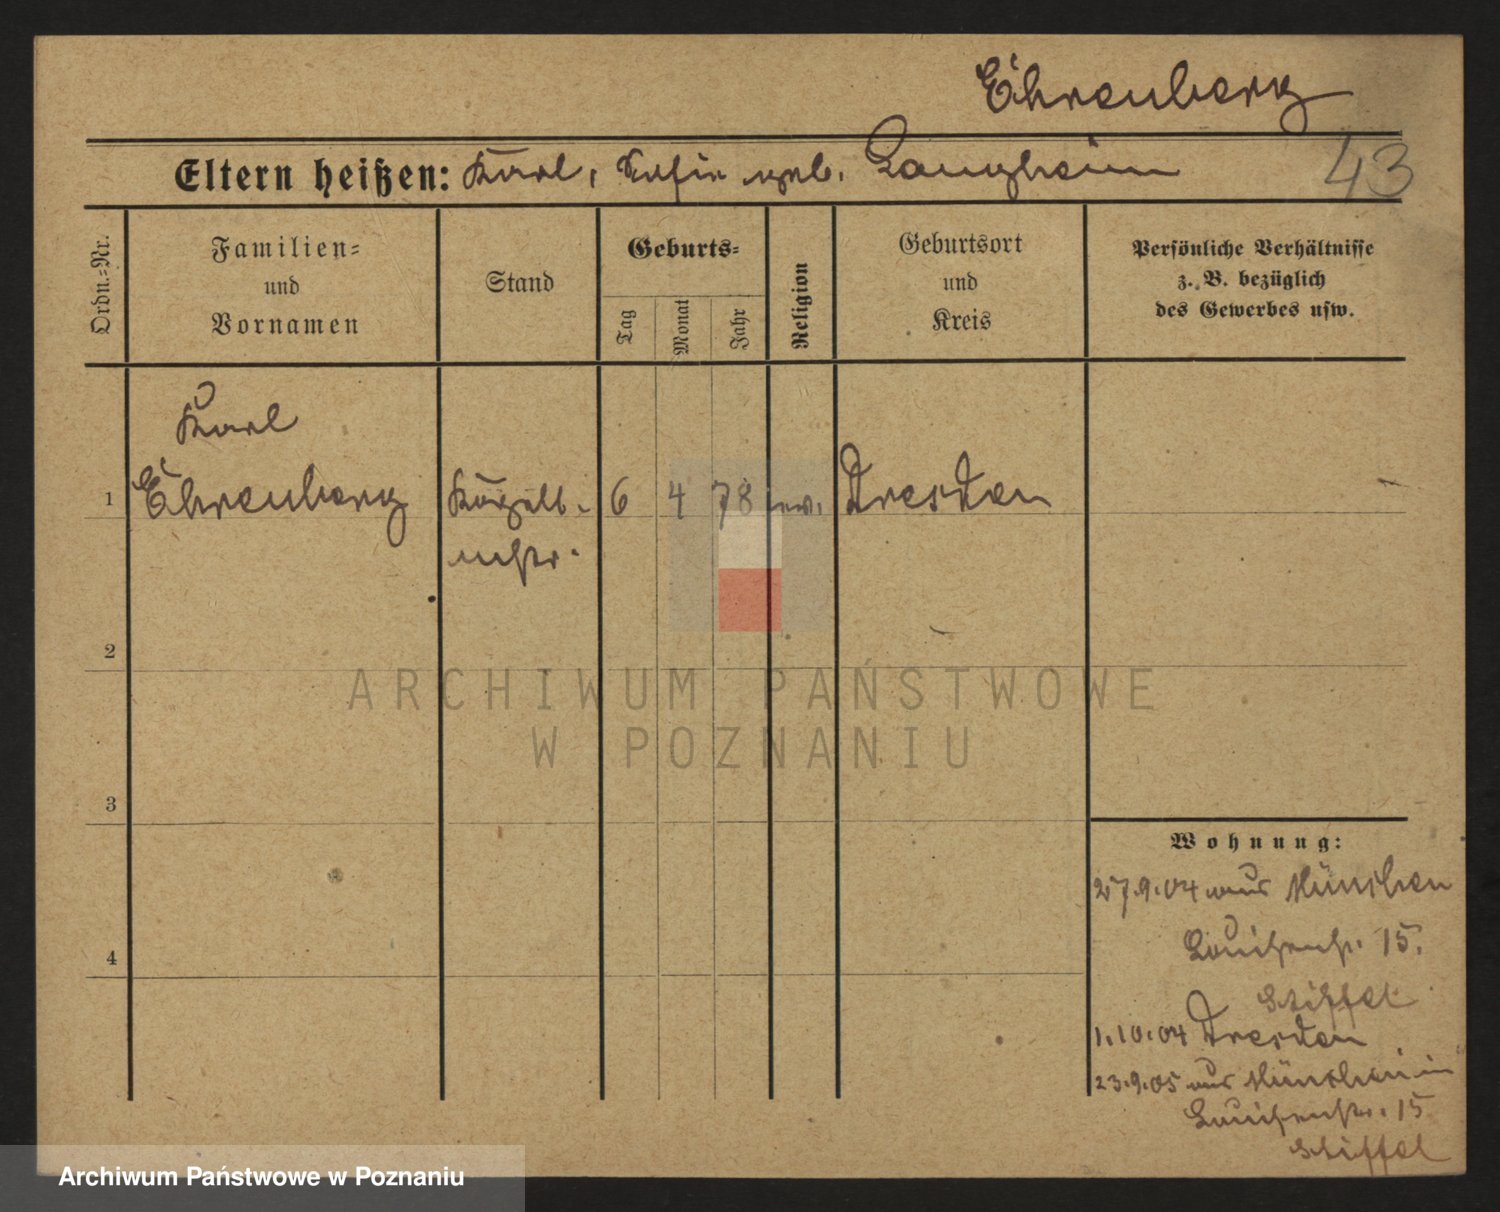 Ehrenberg
43
Eltern heißen: Karl, Sofie geb. Langheim
Ordn.-Nr.
Familien-
und
Vornamen
Stand
Geburts-
Tag
Monat
Jahr
Religion
Geburtsort
und
Kreis
Persönliche Verhältnisse
z. B. bezüglich
des Gewerbes usw.
Karl
1 Ehrenberg Kapell- 6 4 78 ev. Dresden
mstr.
2
ARCHIWUM PAŃSTWOWE
W POZNANIU
3
Wohnung:
27.9.04 aus München
Louisenstr. 15.
Stiffel
4
1.10.04 Dresden
23.9.05 aus München
Louisenstr. 15
Stiffel
Archiwum Państwowe w Poznaniu